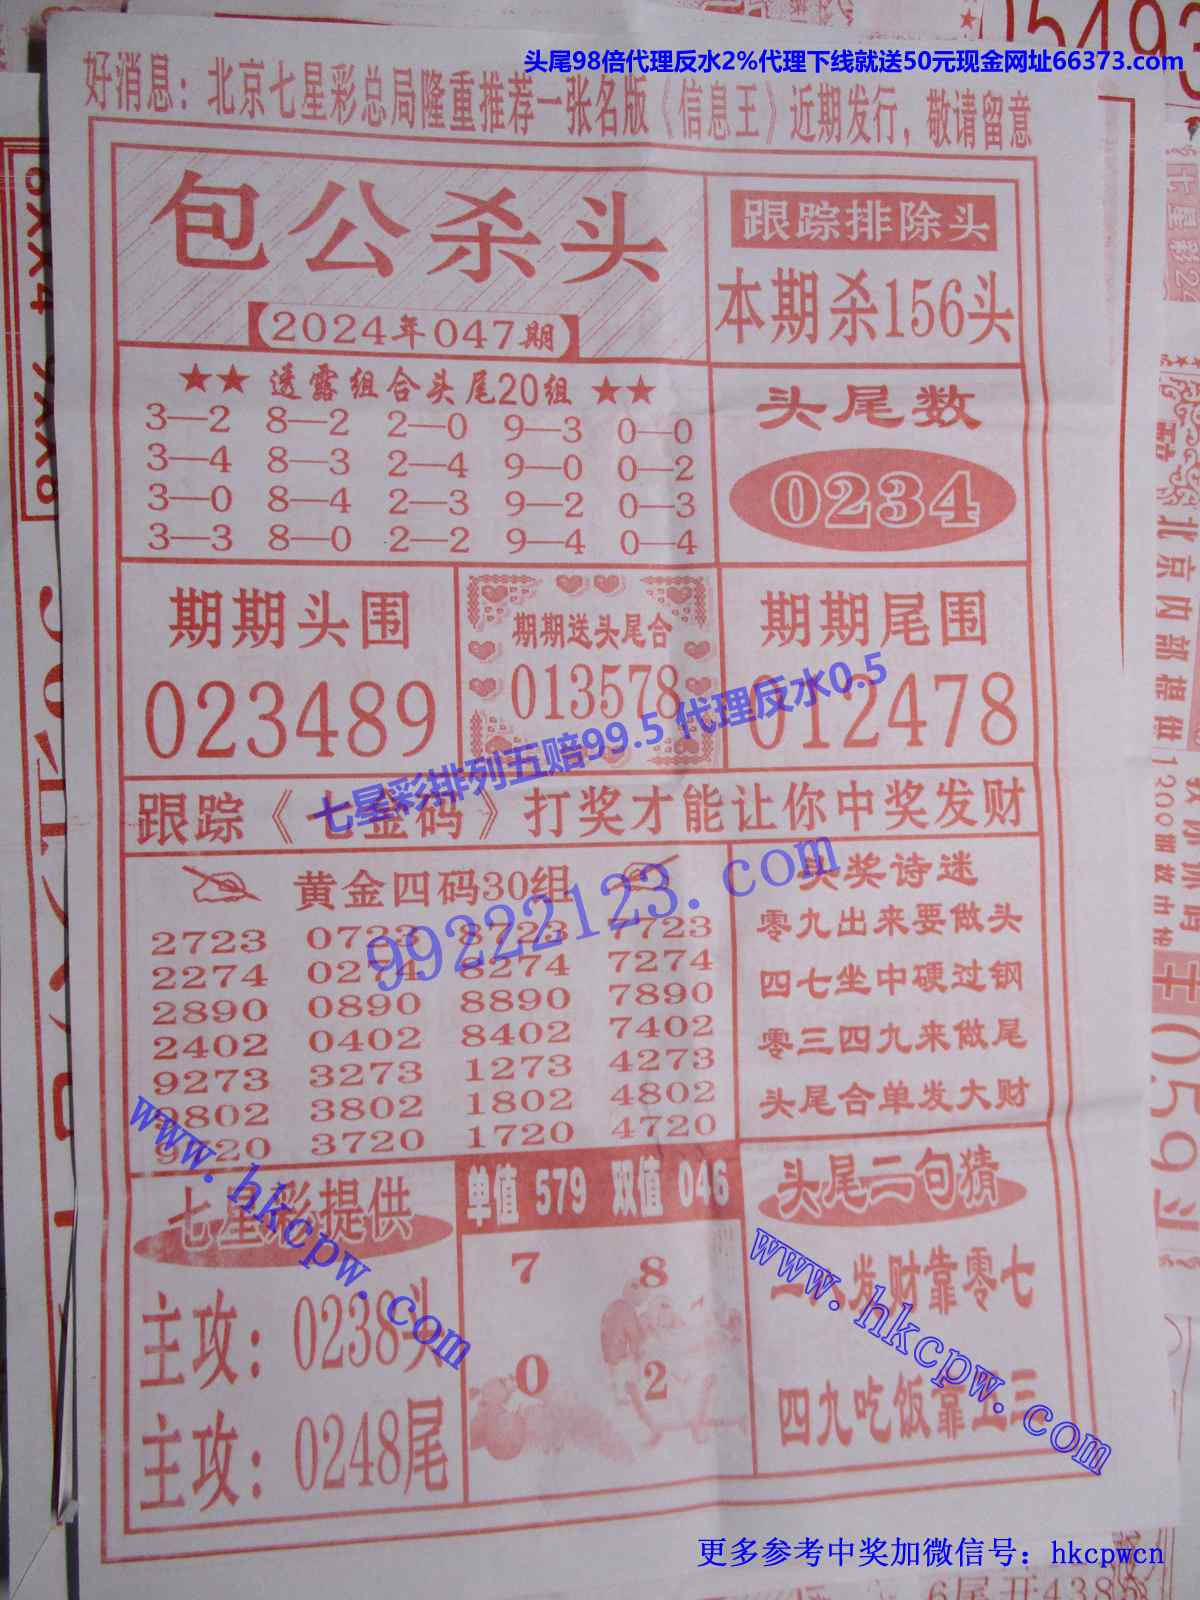 头尾98倍代理反水2%代理下线就送50元现金网址66373.com
好消息：北京七星彩总局隆重推荐一张名版《信息王》近期发行，敬请留意
包公杀头
【2024年047期】
跟踪排除头
本期杀156头
★★ 透露组合头尾20组 ★★
3—2 8—2 2—0 9—3 0—0
3—4 8—3 2—4 9—0 0—2
3—0 8—4 2—3 9—2 0—3
3—3 8—0 2—2 9—4 0—4
头尾数
0234
期期头围
023489
期期送头尾合
013578
期期尾围
012478
七星彩排列五赔99.5 代理反水0.5
跟踪《七金码》打奖才能让你中奖发财
黄金四码30组
2723 0723 8723 7723
2274 0274 8274 7274
2890 0890 8890 7890
2402 0402 8402 7402
9273 3273 1273 4273
9802 3802 1802 4802
9720 3720 1720 4720
99222123.com
头奖诗迷
零九出来要做头
四七坐中硬过钢
零三四九来做尾
头尾合单发大财
七星彩提供
主攻：0238头
主攻：0248尾
www.hkcpw.com
单值 579 双值 046
7 8
0 2
头尾二句猜
一八发财靠零七
四九吃饭靠五三
www.hkcpw.com
更多参考中奖加微信号：hkcpwcn
6尾开4385